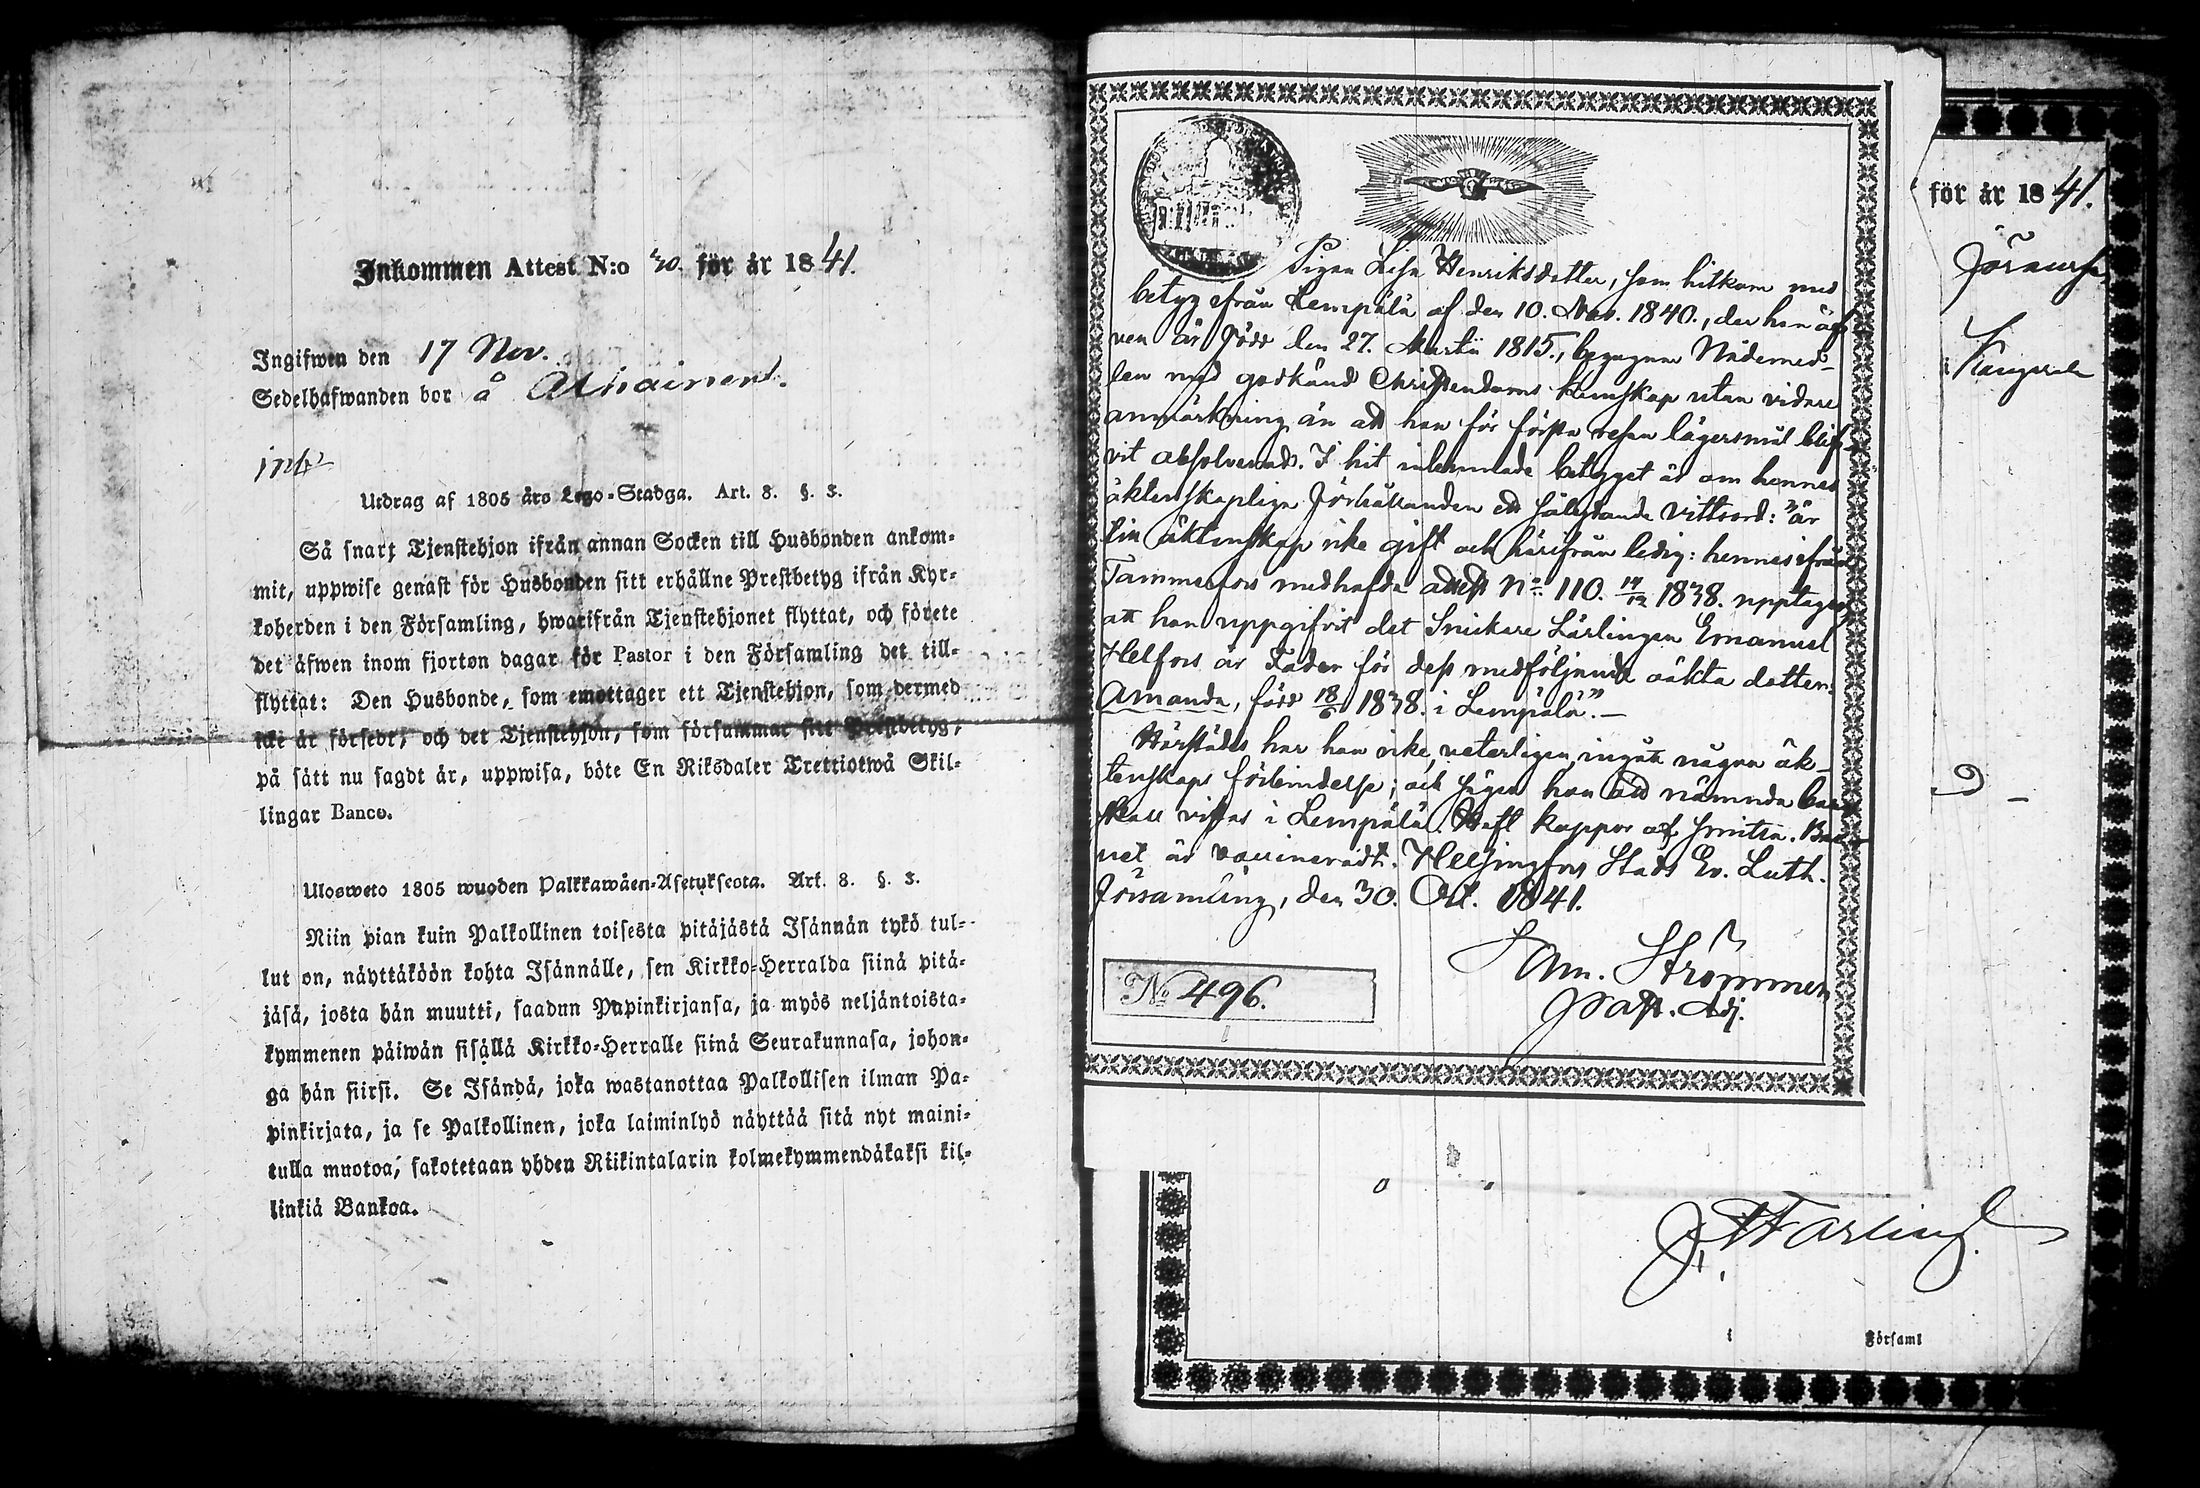 Inkommen Attest N:o 30. för år 1841.
Ingifwen den 17 Nov.
Sedelhafwanden bor å
Utdrag af 1805 års Lego-Stadga. Art. 8. §. 3.
Så snart Tjenstehjon ifrån annan Socken till Husbonden ankom-
mit, uppwise genast för Husbonden sitt erhållne Prestbetyg ifrån Kyr-
koherden i den Församling, hwarifrån Tjenstehjonet flyttat, och förete
det äfwen inom fjorton dagar för Pastor i den Församling det till-
flyttat: Den Husbonde, som emottager ett Tjenstehjon, som dermed
icke är försedt, och det Tjenstehjon, som försummar sitt Prestbetyg,
på sätt nu sagdt är, uppwisa, böte En Riksdaler Trettiotwå Skil-
lingar Banco.
Ulosweto 1805 wuoden Palkkawäen-Asetuksesta. Art. 8. §. 3.
Niin pian kuin Palkollinen toisesta pitäjästä Isännän tykö tul-
lut on, näyttäköön kohta Isännälle, sen Kirkko-Herralda siinä pitä-
jäsä, josta hän muutti, saadun Papinkirjansa, ja myös neljäntoista-
kymmenen päiwän sisällä Kirkko-Herralle siinä Seurakunnasa, johon-
ga hän siirsi. Se Isändä, joka wastanottaa Palkollisen ilman Pa-
pinkirjata, ja se Palkollinen, joka laiminlyö näyttää sitä nyt maini-
tulla muotoa, sakotetaan yhden Riikintalarin kolmekymmendäkaksi kil-
linkiä Bankoa.
Pigan Lisa Henriksdotter, som hitkom med
betyg från Lempälä af den 10. Nov. 1840., der hon äf-
ven är född den 27. Martii 1815., begagnar Nådemed-
len med godkänd Christendoms kunskap utan vidare
anmärkning än att hon för första resan lägersmål blif-
vit absolverad. I hit inlemnade betyget är om hennes
äktenskapliga förhållanden ett följande vittsord: "är
till äktenskap icke gift och härifrån ledig: hennes ifrån
Tammerfors medhafda attest No 110. 14/12 1838. upptager
att hon uppgifvit det Snickare Lärlingen Emanuel
Helfors är Fader för dess medföljande oäkta dotter
Amanda, född 18/6 1838. i Lempälä".—
Härstädes har hon icke, veterligen, ingått någon äk-
tenskaps förbindelse; och säger hon att nämnda barn
skall vistas i Lempälä. Haft koppor af smitta. Bar-
net är vaccineradt. Helsingfors Stads Ev. Luth.
Församling, den 30. Oct. 1841.
Sam. Strömmer
Past. Adj.
No 496.
för år 1841.
Församl